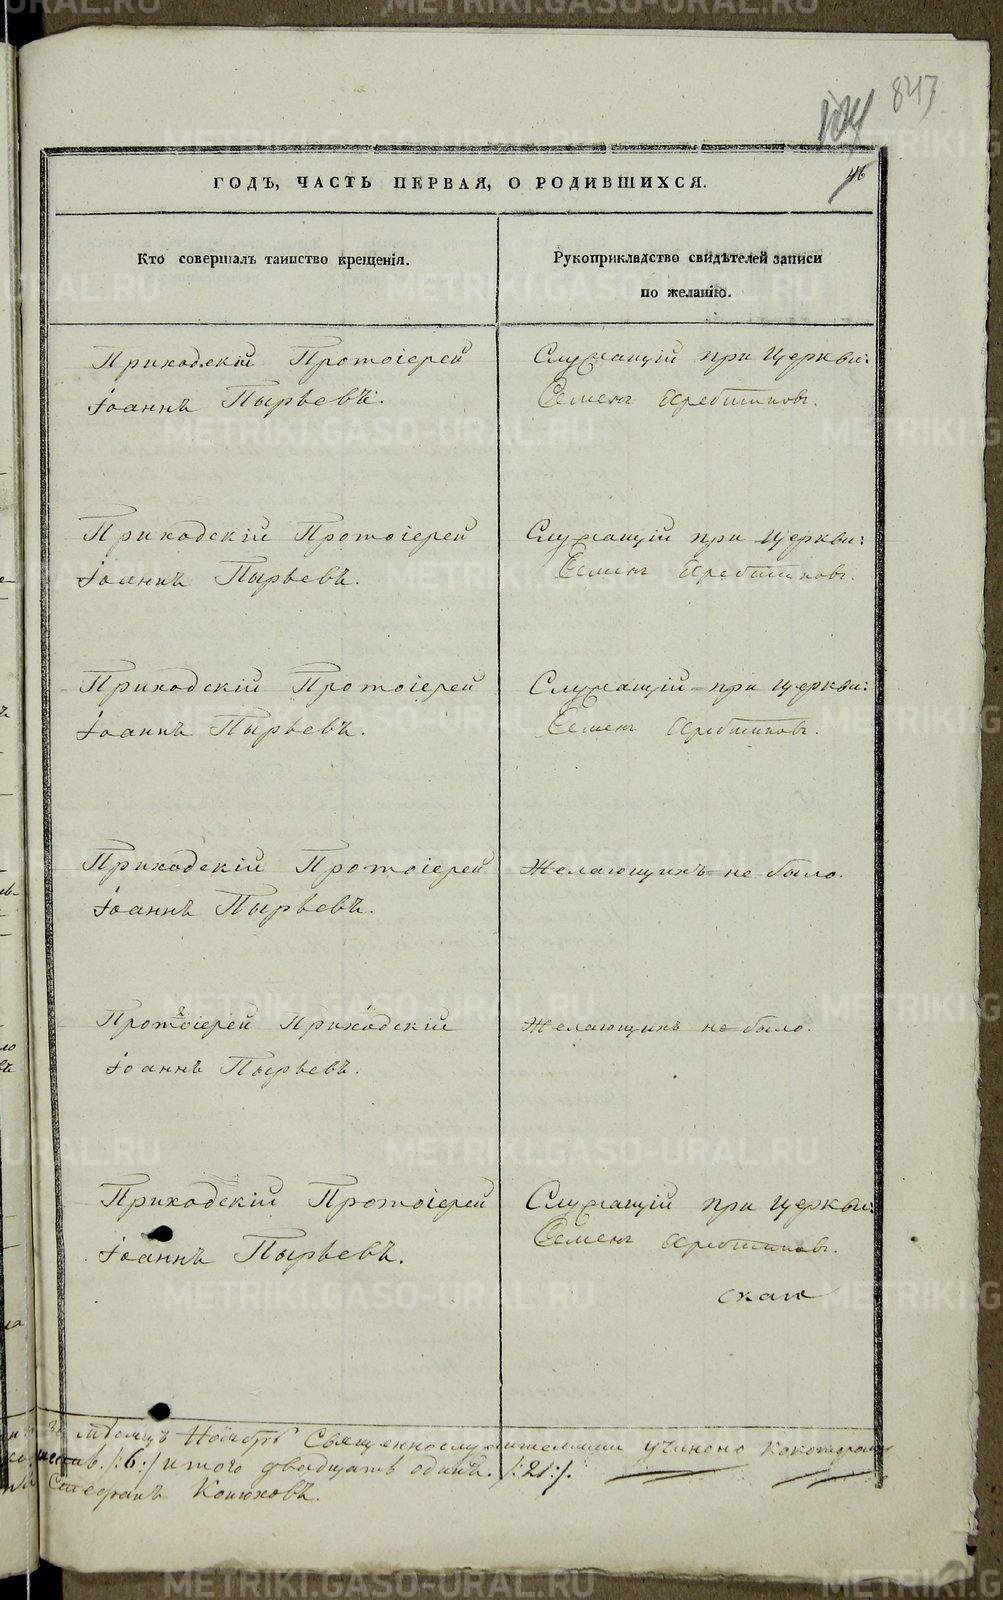 847
46
ГОДЪ, ЧАСТЬ ПЕРВАЯ, О РОДИВШИХСЯ.
Кто совершалъ таинство крещенія.
Рукоприкладство свидѣтелей записи
по желанію.
Приходскій Протоіерей
Іоаннъ Пырьевъ.
Служащій при Церкви:
Семенъ
Приходскій Протоіерей
Іоаннъ Пырьевъ.
Служащій при Церкви:
Семенъ
Приходскій Протоіерей
Іоаннъ Пырьевъ.
Служащій при Церкви:
Семенъ
Приходскій Протоіерей
Іоаннъ Пырьевъ.
Желающихъ не было.
Протоіерей Приходскій
Іоаннъ Пырьевъ.
Желающихъ не было.
Приходскій Протоіерей
Іоаннъ Пырьевъ.
Служащій при Церкви:
Семенъ
Ноябрь Священнослужителями учинено
/:6:/ итого двадцать одинъ. /:21:/.
Стефанъ Конюховъ.
METRIKI.GASO-URAL.RU